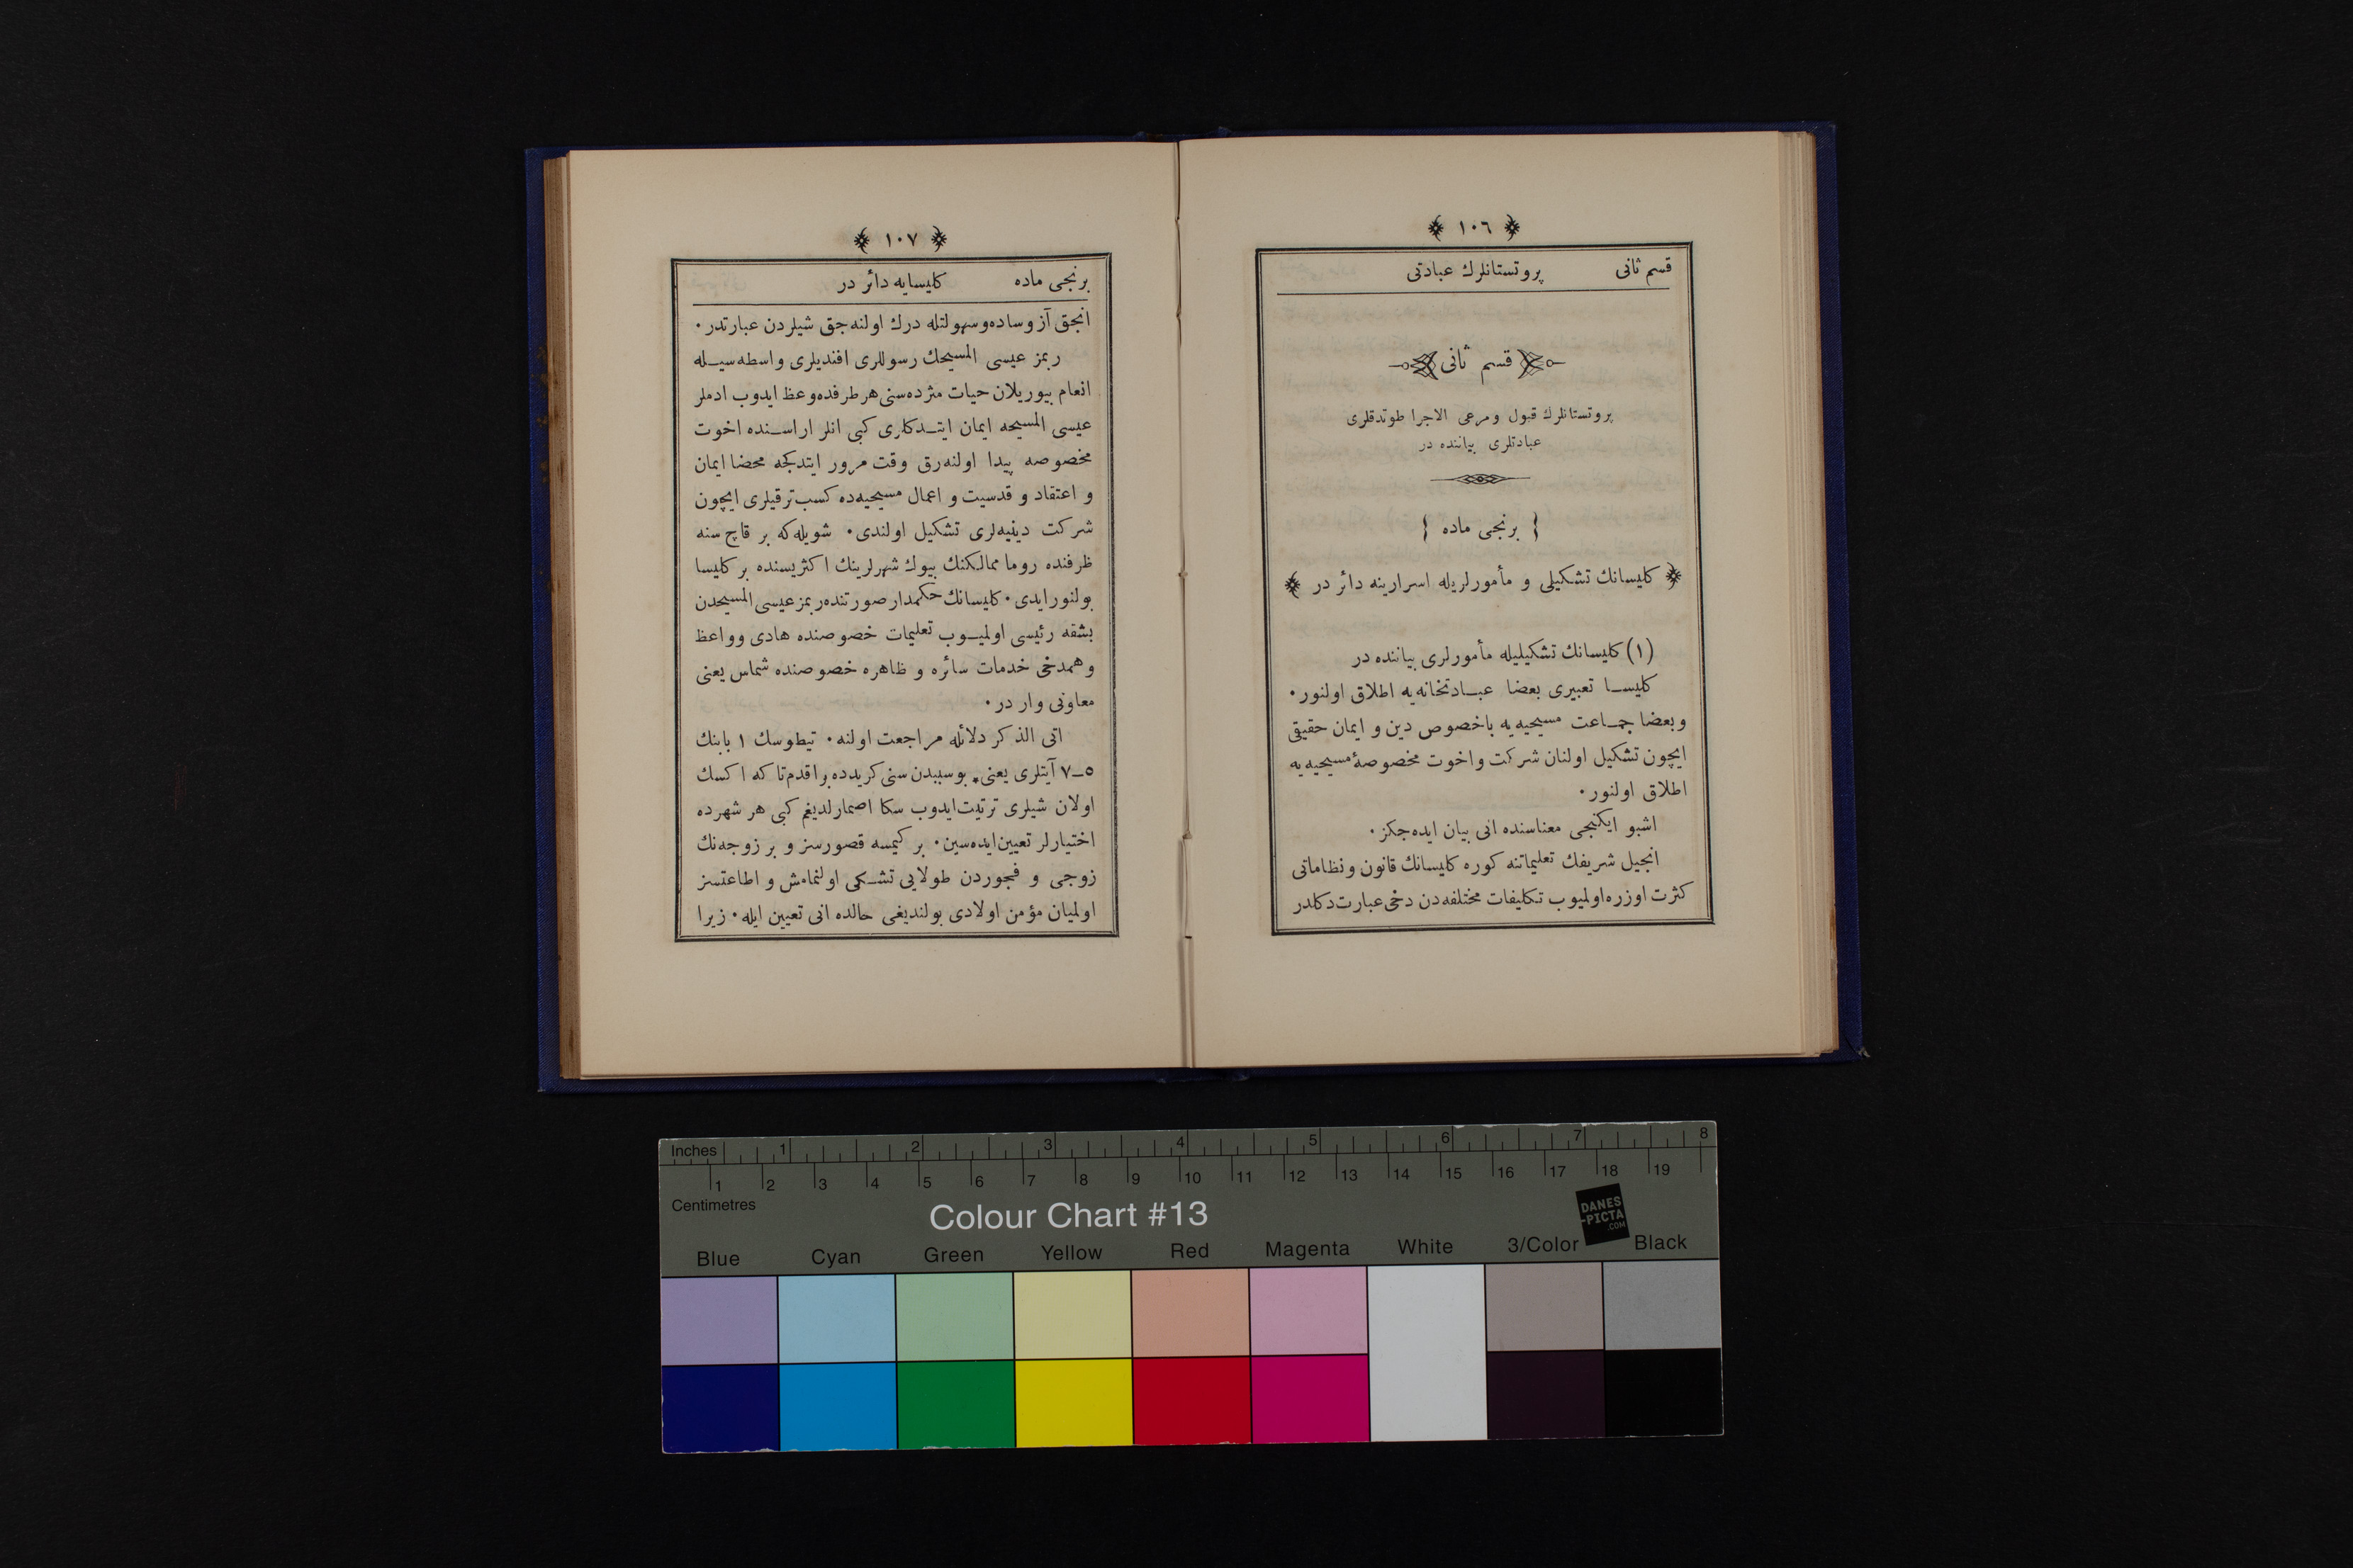 ﴿ ١٠٦ ﴾
قسم ثانی پروتستانلرك عبادتی
قسم ثانی
پروتستانلرك قبول ومرعی الاجرا طوتدقلری
عبادتلری بیاننده در
{ برنجی ماده }
﴿ كلیسانك تشكیلی و مأمورلریله اسرارینه دائر در ﴾
(١) كلیسانك تشكیلیله مأمورلری بیاننده در
كلیسا تعبیری بعضا عبادتخانه‌یه اطلاق اولنور ٠
وبعضا جماعت مسیحیه‌یه باخصوص دین و ایمان حقیقی
ایچون تشكیل اولنان شركت واخوت مخصوصۀ مسیحیه‌یه
اطلاق اولنور ٠
اشبو ایكنجی معناسنده انی بیان ایده‌جكز ٠
انجیل شریفك تعلیماتنه كوره كلیسانك قانون ونظاماتی
كثرت اوزره اولمیوب تكلیفات مختلفه‌دن دخی عبارت دكلدر
﴿ ١٠٧ ﴾
برنجی ماده كلیسایه دائر در
انجق آز وساده وسهولتله درك اولنه‌جق شیلردن عبارتدر ٠
ربمز عیسی المسیحك رسوللری افندیلری واسطه‌سیله
انعام بیوریلان حیات مژده‌سنی هر طرفده وعظ ایدوب ادملر
عیسی المسیحه ایمان ایتدكلری كبی انلر اراسنده اخوت
مخصوصه پیدا اولنه‌رق وقت مرور ایتدكجه محضا ایمان
و اعتقاد و قدسیت و اعمال مسیحیه‌ده كسب ترقیلری ایچون
شركت دینیه‌لری تشكیل اولندی ٠ شویله كه بر قاچ سنه
ظرفنده روما ممالكنك بیوك شهرلرینك اكثریسنده بر كلیسا
بولنور ایدی ٠ كلیسانك حكمدار صورتنده ربمز عیسی المسیحدن
بشقه رئیسی اولمیوب تعلیمات خصوصنده هادی وواعظ
وهمدخی خدمات سائره و ظاهره خصوصنده شماس یعنی
معاونی وار در ٠
اتی الذكر دلائله مراجعت اولنه ٠ تیطوسك ١ بابنك
٥ـ٧ آیتلری یعنی * بو سببدن سنی كریدده براقدم تا كه اكسك
اولان شیلری ترتیت ایدوب سكا اصمارلدیغم كبی هر شهرده
اختیارلر تعیین ایده‌سین ٠ بر كیمسه قصورسز و بر زوجه‌نك
زوجی و فجوردن طولایی تشكی اولنمامش و اطاعتسز
اولمیان مؤمن اولادی بولندیغی حالده انی تعیین ایله ٠ زیرا
Inches 1 2 3 4 5 6 7 8
1 2 3 4 5 6 7 8 9 10 11 12 13 14 15 16 17 18 19
Centimetres
Colour Chart #13
DANES
-PICTA
.COM
Blue Cyan Green Yellow Red Magenta White 3/Color Black